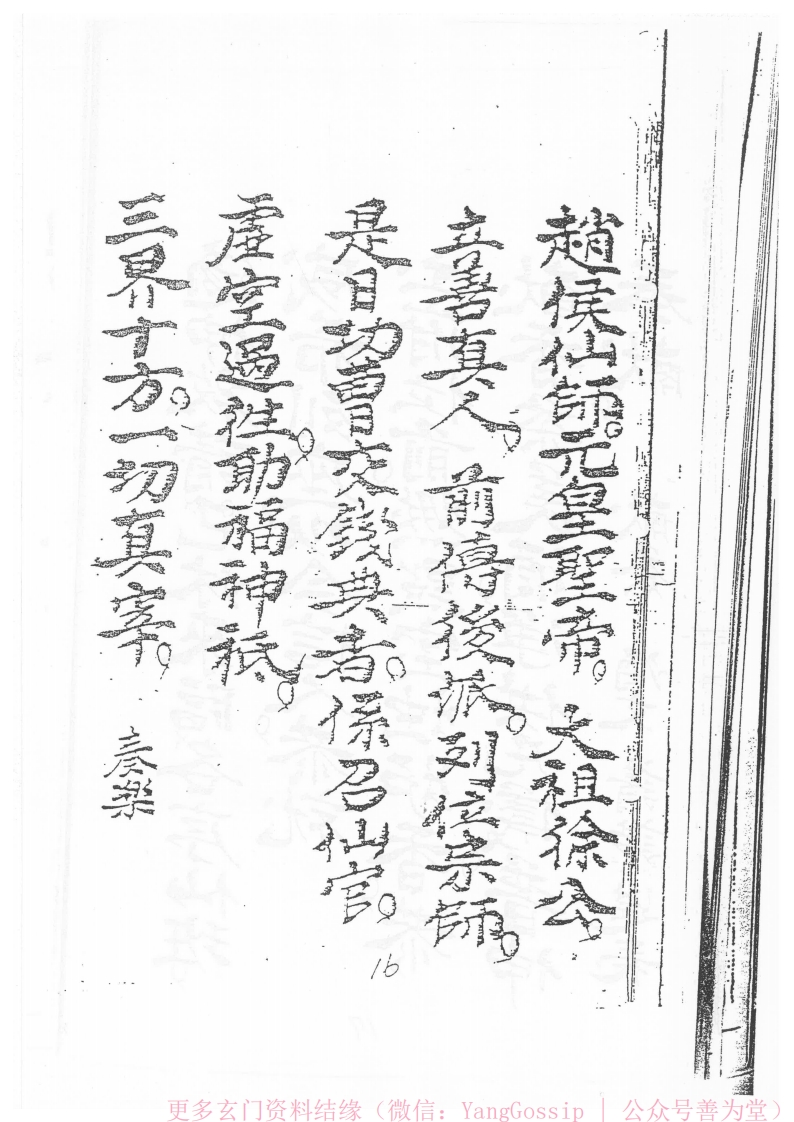 趙侯仙師。元皇聖帝。大祖徐公。
立善真人。前傳後派。列位宗師。
是日功曹交錢典者。係召仙官。
虛空過往。助福神祇。
三界十方。一切真宰。奏樂
16
更多玄门资料结缘（微信：YangGossip | 公众号善为堂）